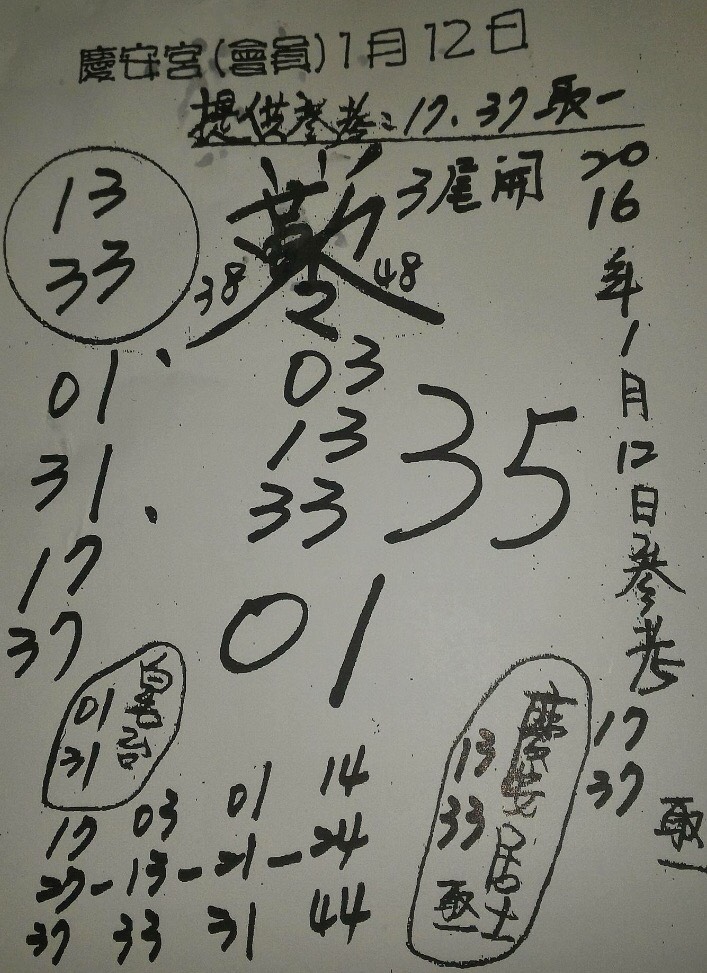 慶安宮(會員)1月12日
提供參考:17.37取一
3尾開
13
33
38
48
2
01、
31、
17
37
03
13
33
35
01
2016年1月12日參考
17
37
取一
01
31
慶安居士
13
33
取一
17 03 01 14
27-13-21-24
37 33 31 44